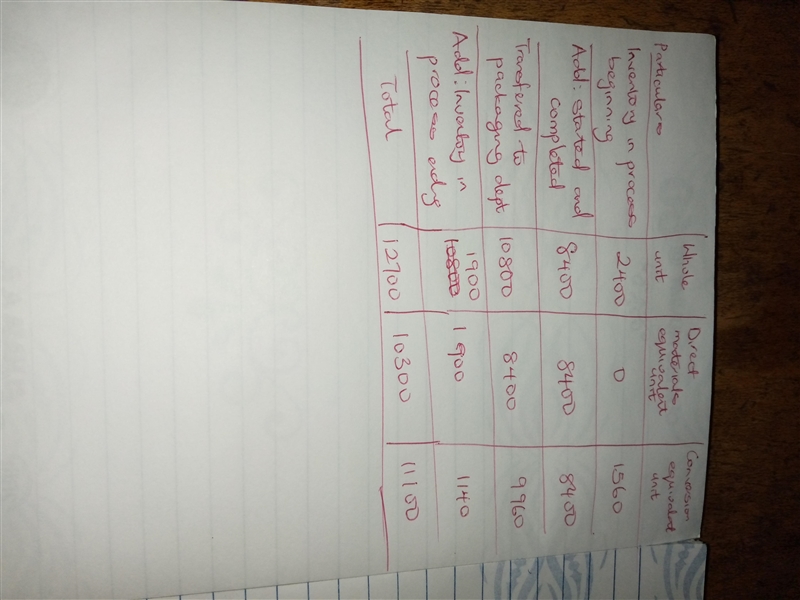 Particulars
Whole unit
Direct materials equivalent unit
Conversion equivalent unit
Inventory in process beginning
2400
0
1560
Add: Started and completed
8400
8400
8400
Transfered to packaging dept
10800
8400
9960
Add: Inventory in process endg
1900
1900
1140
Total
12700
10300
11100